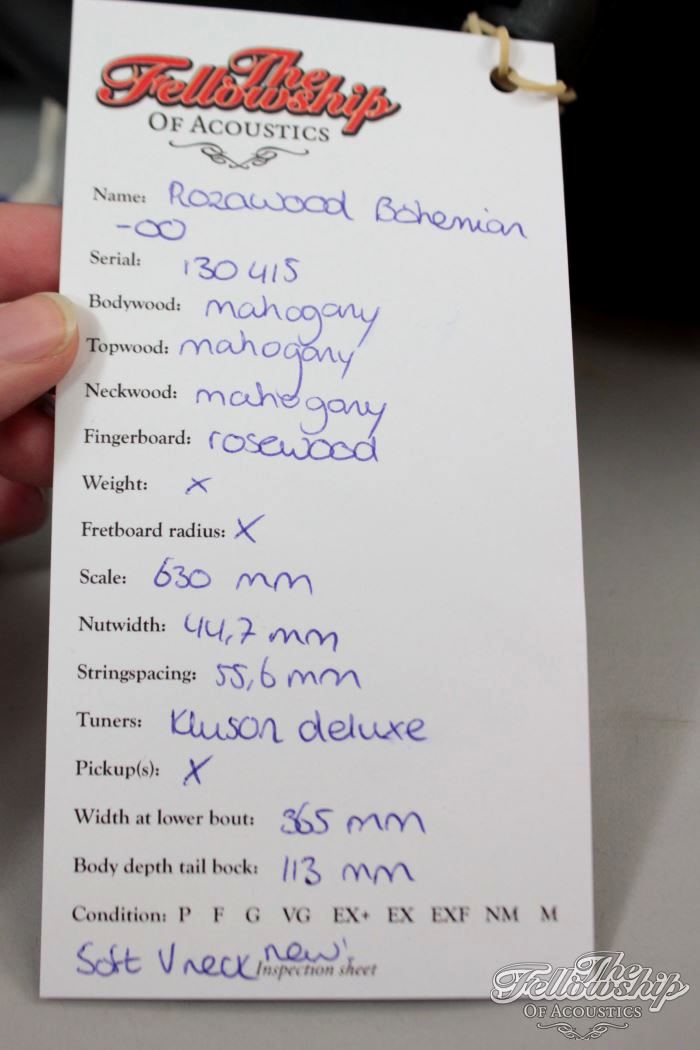 The
Fellowship
OF ACOUSTICS
Name: Rozawood Bohemian
-OO
Serial: 130415
Bodywood: mahogany
Topwood: mahogany
Neckwood: mahogany
Fingerboard: rosewood
Weight: x
Fretboard radius: X
Scale: 630 mm
Nutwidth: 44,7 mm
Stringspacing: 55,6 mm
Tuners: Kluson deluxe
Pickup(s): X
Width at lower bout: 365 mm
Body depth tail bock: 113 mm
Condition: P F G VG EX+ EX EXF NM M
Soft V neck new!
Inspection sheet
The
Fellowship
OF ACOUSTICS